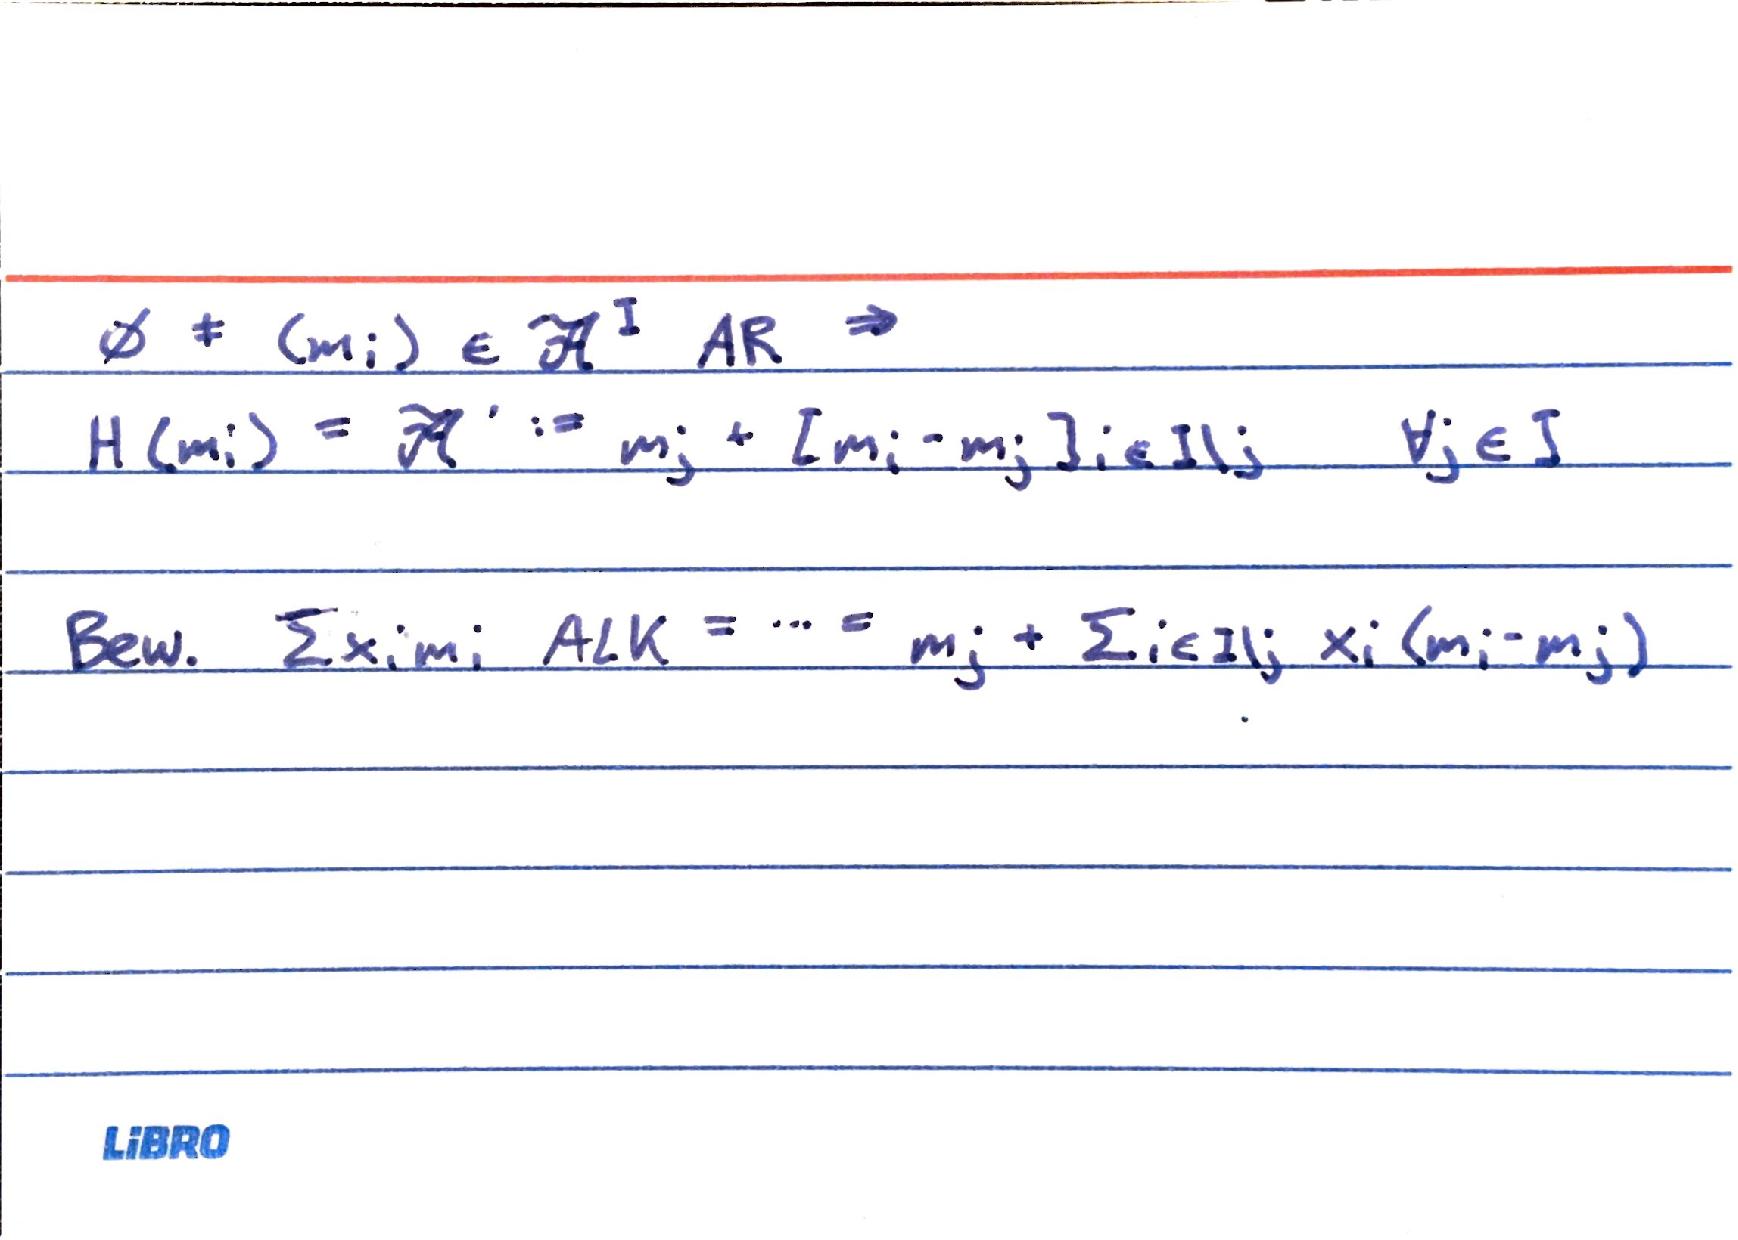 ∅ ≠ (mᵢ) ∈ 𝓐ᴵ AR ⇒
H(mᵢ) = 𝓐' := mⱼ + [mᵢ - mⱼ]i∈I\j ∀j ∈ I
Bew. Σxᵢmᵢ ALK = ... = mⱼ + Σi∈I\j xᵢ(mᵢ-mⱼ)
LiBRO